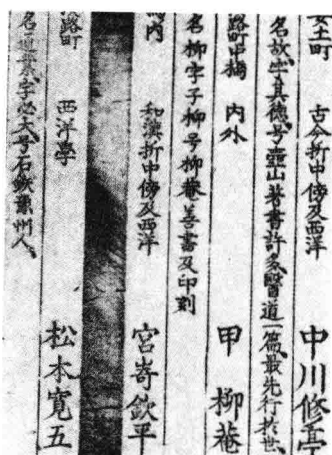 安土町 古今折中傍及西洋 中川修亭
名故、字其徳、号壺山著書許多、醫道一篇、最先行於世、
路町中橋 内外 甲 柳菴
名柳字子柳号柳菴善書及印刻
内 和漢折中傍及西洋 宮嵜欽平
路町 西洋學 松本寛五
名 字必大号石 州人、